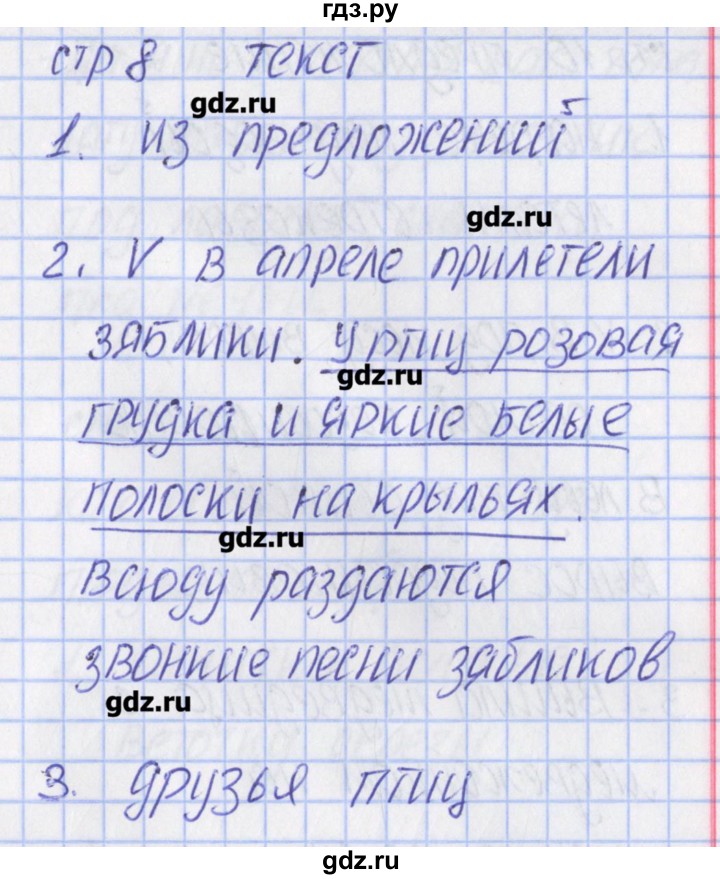 гдз.ру
стр 8 текст
gdz.ru
1. из предложений
gdz.ru
2. V в апреле прилетели
зяблики. У птиц розовая
gdz.ru
грудка и яркие белые
полоски на крыльях.
gdz.ru
Всюду раздаются
звонкие песни зябликов
gdz.ru
3. друзья птиц
gdz.ru